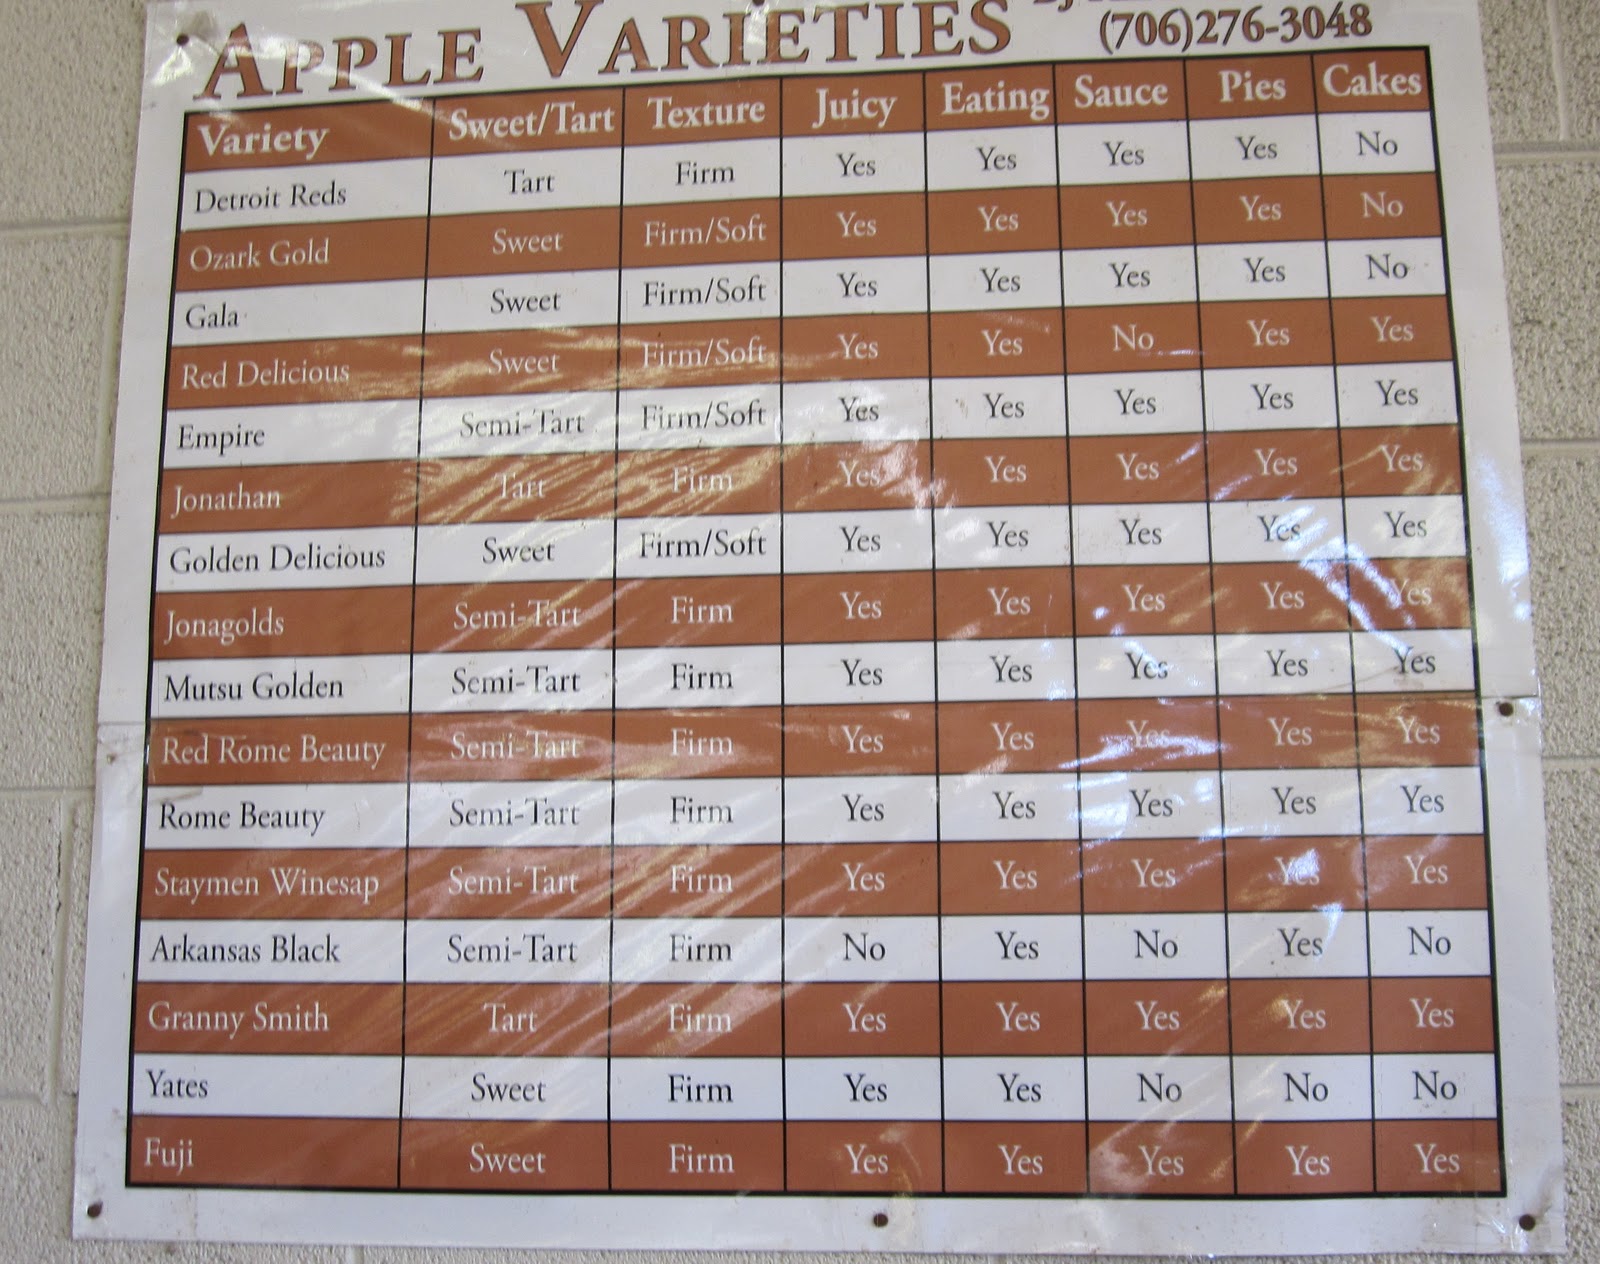 APPLE VARIETIES
(706)276-3048
Variety Sweet/Tart Texture Juicy Eating Sauce Pies Cakes
Detroit Reds Tart Firm Yes Yes Yes Yes No
Ozark Gold Sweet Firm/Soft Yes Yes Yes Yes No
Gala Sweet Firm/Soft Yes Yes Yes Yes No
Red Delicious Sweet Firm/Soft Yes Yes No Yes Yes
Empire Semi-Tart Firm/Soft Yes Yes Yes Yes Yes
Jonathan Tart Firm Yes Yes Yes Yes Yes
Golden Delicious Sweet Firm/Soft Yes Yes Yes Yes Yes
Jonagolds Semi-Tart Firm Yes Yes Yes Yes Yes
Mutsu Golden Semi-Tart Firm Yes Yes Yes Yes Yes
Red Rome Beauty Semi-Tart Firm Yes Yes Yes Yes Yes
Rome Beauty Semi-Tart Firm Yes Yes Yes Yes Yes
Staymen Winesap Semi-Tart Firm Yes Yes Yes Yes Yes
Arkansas Black Semi-Tart Firm No Yes No Yes No
Granny Smith Tart Firm Yes Yes Yes Yes Yes
Yates Sweet Firm Yes Yes No No No
Fuji Sweet Firm Yes Yes Yes Yes Yes